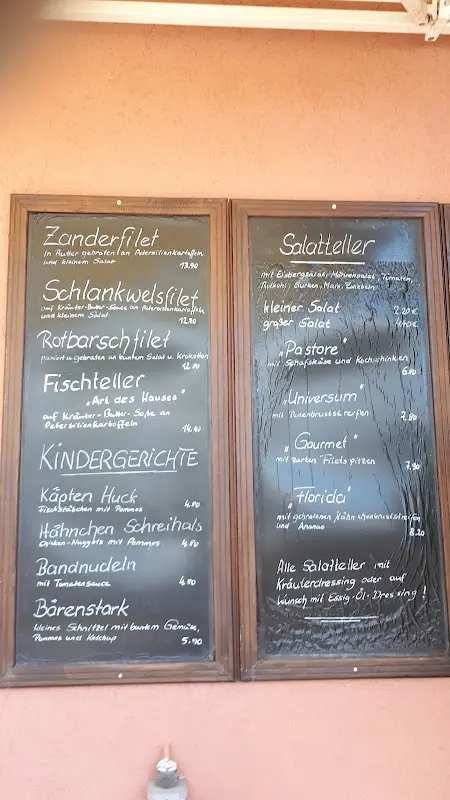 Zanderfilet
in Butter gebraten an Petersilienkartoffeln
und kleinem Salat 13.90
Schlankwelsfilet
auf Kräuter-Butter-Sauce an Petersilienkartoffeln
und kleinem Salat
12.90
Rotbarschfilet
paniert u. gebraten an buntem Salat u. Kroketten
12.80
Fischteller
"Art des Hauses"
auf Kräuter-Butter-Soße an
Petersilienkartoffeln 14.40
KINDERGERICHTE
Käpten Huck
Fischstäbchen mit Pommes 4.80
Hähnchen Schreihals
Chicken-Nuggets mit Pommes 4.80
Bandnudeln
mit Tomatensauce 4.80
Bärenstark
kleines Schnitzel mit buntem Gemüse,
Pommes und Ketchup 5.90
Salatteller
mit Eisbergsalat, Möhrensalat, Tomaten,
Rotkohl, Gurken, Mais, Zwiebeln
kleiner Salat 2.20 €
großer Salat 4.40 €
"Pastore"
mit Schafskäse und Kochschinken
6.80
"Universum"
mit Putenbruststreifen 7.80
"Gourmet"
mit zarten Filetspitzen 7.90
"Florida"
mit gebratenen Hähnchenbruststreifen
und Ananas 8.20
Alle Salatteller mit
Kräuterdressing oder auf
Wunsch mit Essig-Öl-Dressing!